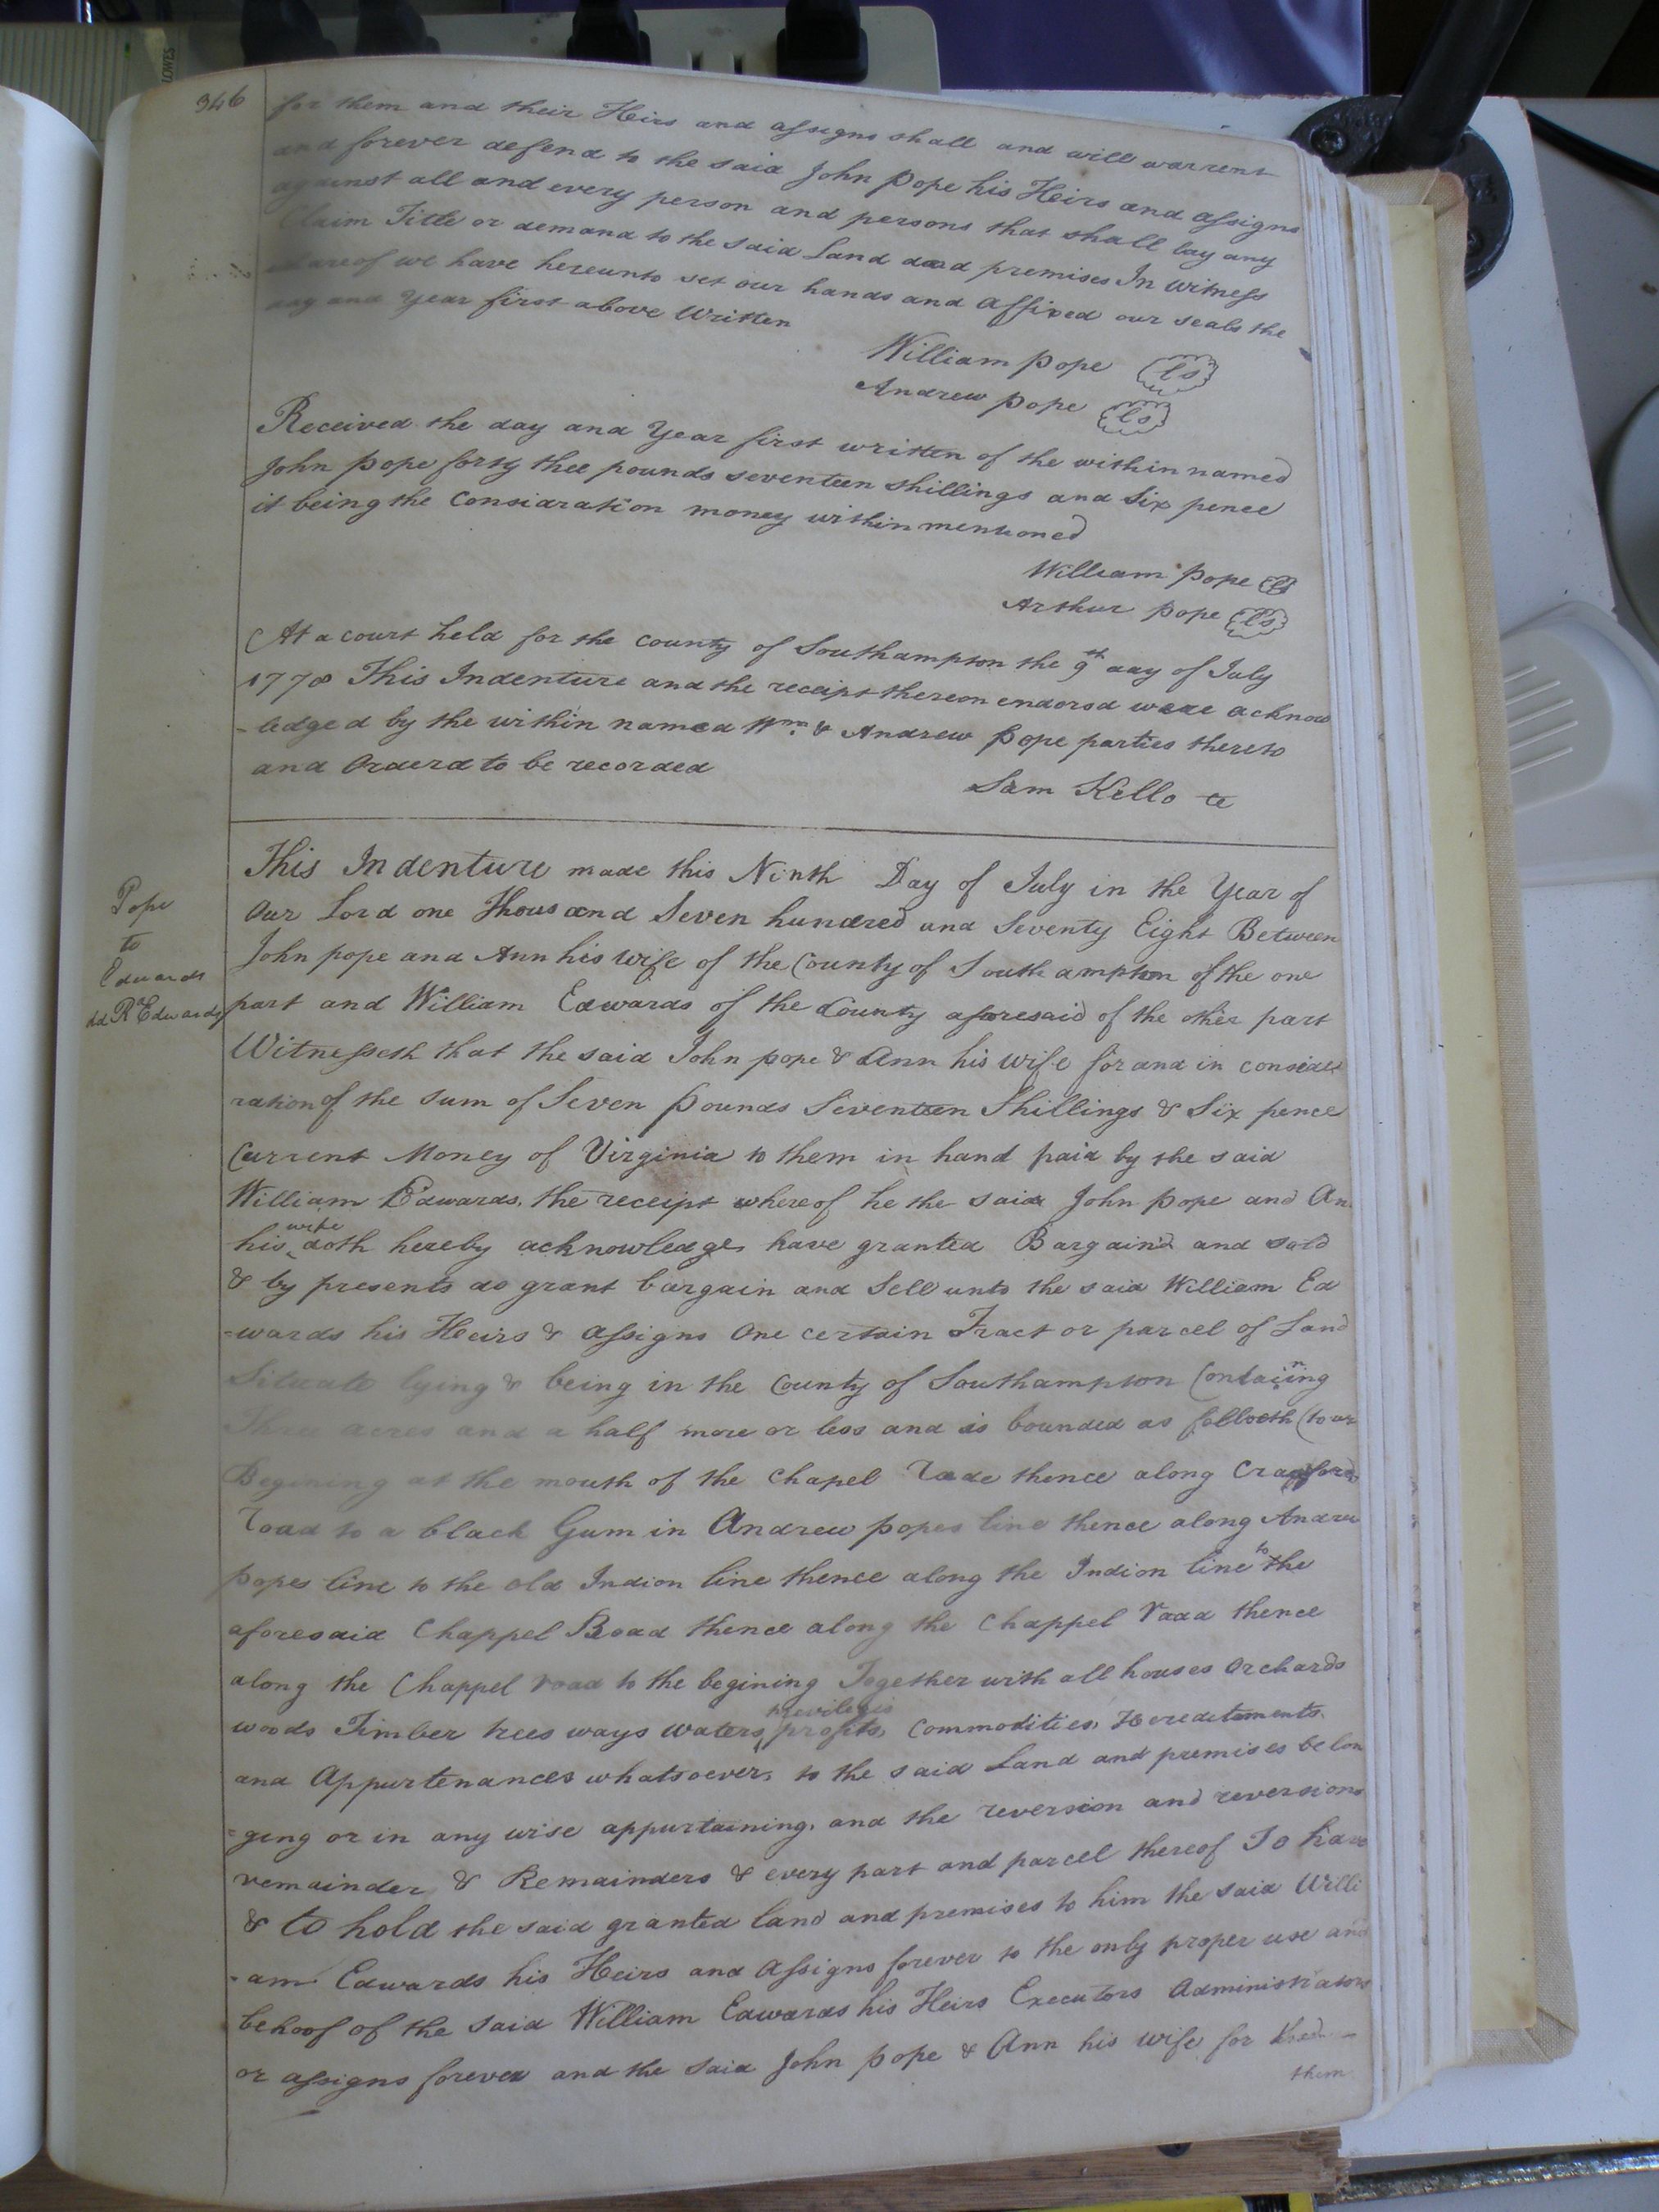 346
for them and their Heirs and assigns shall and will warrent
and forever defend to the said John Pope his Heirs and assigns
against all and every person and persons that shall lay any
Claim Title or demand to the said Land and premises In Witness
whareof we have hereunto set our hands and affixed our seals the
day and Year first above Written
William Pope ls
Andrew Pope ls
Received the day and Year first written of the within named
John Pope forty thee pounds seventeen shillings and Six pence
it being the Considaration money within mentioned
William Pope ls
Arthur Pope ls
At a court held for the County of Southampton the 9th day of July
1778 This Indenture and the receipt thereon endorsd were acknow
-ledged by the within named Wm. & Andrew Pope parties thereto
and Orderd to be recorded
Sam Kello ce
Pope
to
Edwards
dd R Edwards
This Indenture made this Ninth Day of July in the Year of
Our Lord one Thousand Seven hundred and Seventy Eight Between
John pope and Ann his wife of the County of Southampton of the one
part and William Edwards of the County aforesaid of the other part
Witnesseth that the said John pope & Ann his wife for and in conside
ration of the Sum of Seven Pounds Seventeen Shillings & Six pence
Current Money of Virginia to them in hand paid by the said
William Edwards, the receipt whereof he the said John Pope and An
his wife doth hereby acknowledge, have granted Bargain'd and sold
& by presents do grant bargain and Sell unto the said William Ed
=wards his Heirs & assigns One certain Tract or parcel of Land
Situate lying & being in the County of Southampton Containing
Three acres and a half more or less and is bounded as followeth (to
Begining at the mouth of the Chapel rode thence along
road to a black Gum in Andrew popes line thence along Andrew
popes line to the old Indion line thence along the Indion line to the
aforesaid Chappel Road thence along the Chappel road thence
along the Chappel road to the begining Together with all houses Orchards
woods Timber trees ways waters, previleges profits, Commodities, Hereditaments.
and Appurtenances whatsoever, to the said Land and premises belon
=ging or in any wise appurtaining, and the reversion and reversions
remainder & Remainders & every part and parcel thereof To have
& to hold the said granted land and premises to him the said Willi
-am Edwards his Heirs and Assigns forever to the only proper use and
behoof of the said William Edwards his Heirs Executors Administrators
or assigns forever and the said John Pope & Ann his wife for
them